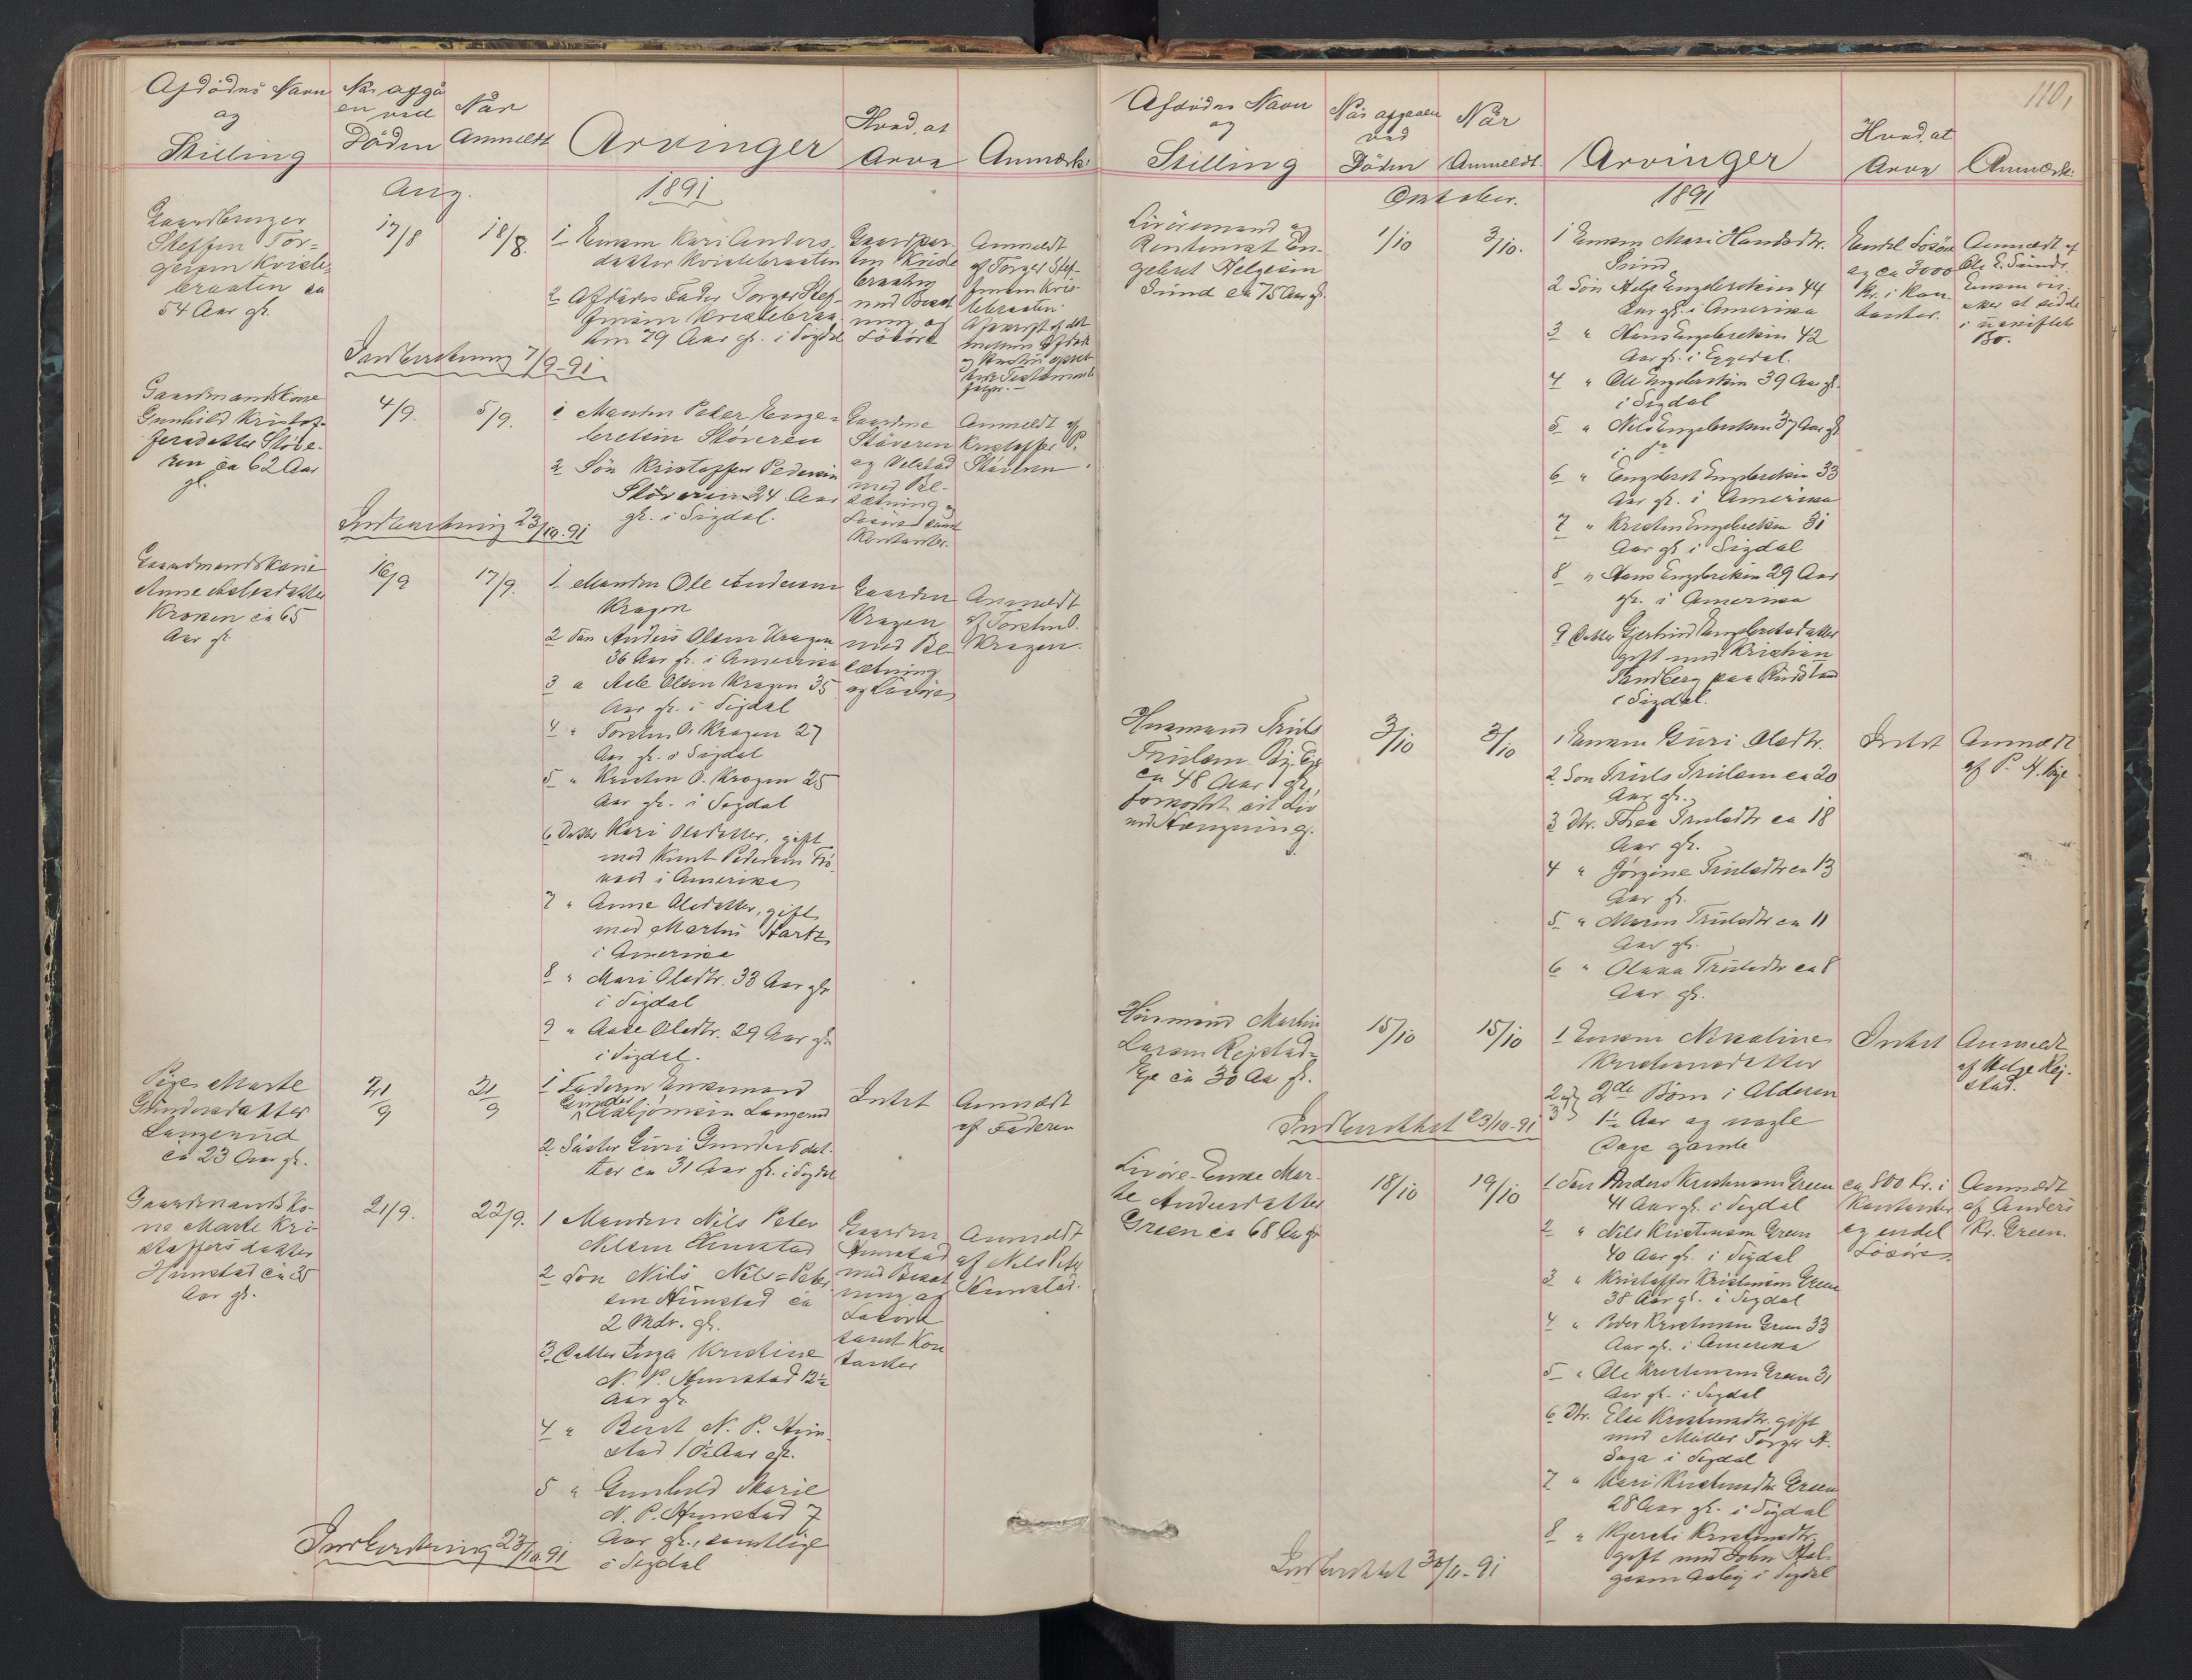 Afdödes Navn
og
Stilling
Når afgå
en ved
Döden
Når
Anmeldt
Arvinger
Hvad at
Arve
Anmærk:
Aug.
1891
Gaardbruger
Steffen Tor=
gersen Kvisle=
braaten ca
54 Aar gl.
17/8
18/8.
1 Enken Kari Anders
datter Kvislebraaten
2 Afdödes Fader Torger Stef-
fensen Kvislebraa-
ten 79 Aar gl. i Sigdal
Gaardpar-
ten Kvisle
braaten
med Besæt
ning og
Lösöre
Anmeldt
af Torger Stef-
fensen Kvis-
lebraaten
Afskrift af det
mellem Afdöde
og Hustru opret-
tede Testamente
fölger.-
Indberetning 7/9-91
Gaardmandskone
Gunhild Kristof-
fersdatter Støve-
ren ca 62 Aar
gl.
4/9.
5/9.
1 Manden Peder Enge=
bretsen Støveren
2 Sön Kristoffer Pedersen
Støveren 24 Aar
gl. i Sigdal.
Gaardene
Støveren
og Velstad
med Be-
sætning og
Lösöre samt
Kontanter.
Anmeldt af
Kristoffer P.
Støveren
Indberetning 23/10-91
Gaardmandskone
Anne Asles datter
Kroken ca 65
Aar gl.
16/9
17/9.
1 Manden Ole Andersen
Kragen
2 Sön Anders Olsen Kragen
36 Aar gl. i Amerika
3 " Asle Olsen Kragen 35
Aar gl. i Sigdal
4 " Torsten O. Kragen 27
Aar gl. i Sigdal
5 " Kristen O. Kragen 25
Aar gl. i Sigdal
6 Datter Kari Olsdatter, gift
med Knut Pedersen
i Amerika
7 " Anne Olsdatter, gift
med Martin Hartz
i Amerika
8 " Mari Olsdtr. 33 Aar gl
i Sigdal
9 " Aase Olsdtr. 29 Aar gl
i Sigdal.
Gaarden
Kragen
med Be-
sætning
og Lösöre
Anmeldt
af Torsten O.
Kragen.
Pige Marte
Gundersdatter
Langerud
ca 23 Aar gl.
21/9
21/9
1 Faderen Enkemand
Gunder
Asbjörnsen Langerud
2 Söster Guri Gunders dat-
ter ca 31 Aar gl. i Sigdal
Intet
Anmeldt
af Faderen
Gaardmandsko-
ne Marte Kri-
stoffersdatter
Hunstad ca 35
Aar gl.
21/9.
22/9.
1 Manden Nils Peter
Nilsen Hunstad
2 Sön Nils Nils=Peter
sen Hunstad ca
2 Mdr. gl.
3 Datter Inga Kristine
N. P. Hunstad 12½
Aar gl.
4 " Berit N. P. Hun-
stad 10½ Aar gl.
5 " Gunhild Marie
N. P. Hunstad 7
Aar gl., samtlige
i Sigdal
Gaarden
Hunstad
med Besæt
ning og
Lösöre
samt Kon
tanter
Anmeldt
af Nils Peter
Hunstad.
Indberetning 23/10-91
110,
Afdödes Navn
og
Stilling
Når afgaaen
ved
Döden
Når
Anmeldt.
Arvinger
Hvad at
Arve
Anmærk:
Oktober.
1891
Livöremand og
Rentenist En-
gebret Helgesen
Sund ca 75 Aar gl.
1/10
3/10.
1 Enken Mari Hansdtr.
Sund
2 Sön Helge Engebretsen 44
Aar gl. i Amerika
3 " Hans Engebretsen 42
Aar gl. i Eggedal.
4 " Ole Engebretsen 39 Aar gl.
i Sigdal
5 " Nils Engebretsen 37 Aar gl
i do
6 " Engebret Engebretsen 33
Aar gl. i Amerika
7 " Kristen Engebretsen 31
Aar gl i Sigdal
8 " Hans Engebretsen 29 Aar
gl. i Amerika
9 Datter Gjertrud Engebretsdatter
gift med Kristian
Sandberg paa
i Sigdal.
Endel Lösöre
og ca 3000
Kr. i Kon-
tanter.
Anmeldt af
Ole E. Sund.
Enken öns-
ker at sidde
i uskiftet
Bo.
Husmand Truls
Trulsen Bj. Eje
ca 48 Aar gl,
forkortet sit Liv
ved Hængning.
3/10
3/10
1 Enken Guri Olsdtr.
2 Sön Truls Trulsen ca 20
Aar gl.
3 Dtr. Thea Trulsdtr ca 18
Aar gl.
4 " Jörgine Trulsdtr ca 13
Aar gl.
5 " Maren Trulsdtr ca 11
Aar gl.
6 " Olava Trulsdtr ca 8
Aar gl.
Intet
Anmeldt
af P. H.
Husmand Martin
Larsen Rejstad=
Eje ca 30 Aar gl.
15/10
15/10
1 Enken Nikoline
Kristiansdatter
2 og 3 2de Börn i Alderen
1½ Aar og nogle
Dage gamle
Intet
Anmeldt
af Helge Rej-
stad.
Indberettet 23/10-91
Livöre-Enke Mar-
te Andersdatter
Green ca 68 Aar gl
18/10
19/10
1 Sön Anders Kristensen Green
41 Aar gl. i Sigdal
2 " Nils Kristensen Green
40 Aar gl. i Sigdal
3 " Kristoffer Kristensen Green
38 Aar gl. i Sigdal
4 " Peder Kristensen Green 33
Aar gl. i Amerika
5 " Ole Kristensen Green 31
Aar gl. i Sigdal
6 Dtr. Else Kristensdtr. gift
med Möller Torger A.
Saga i Sigdal
7 " Kari Kristensdtr Green
28 Aar gl. i Sigdal
8 " Kjersti Kristensdtr.
gift med John Hel-
gesen Aasly i Sigdal
ca 800 Kr. i
Kontanter
og endel
Lösöre.
Anmeldt
af Anders
Kr. Green.
Indberettet 30/11-91